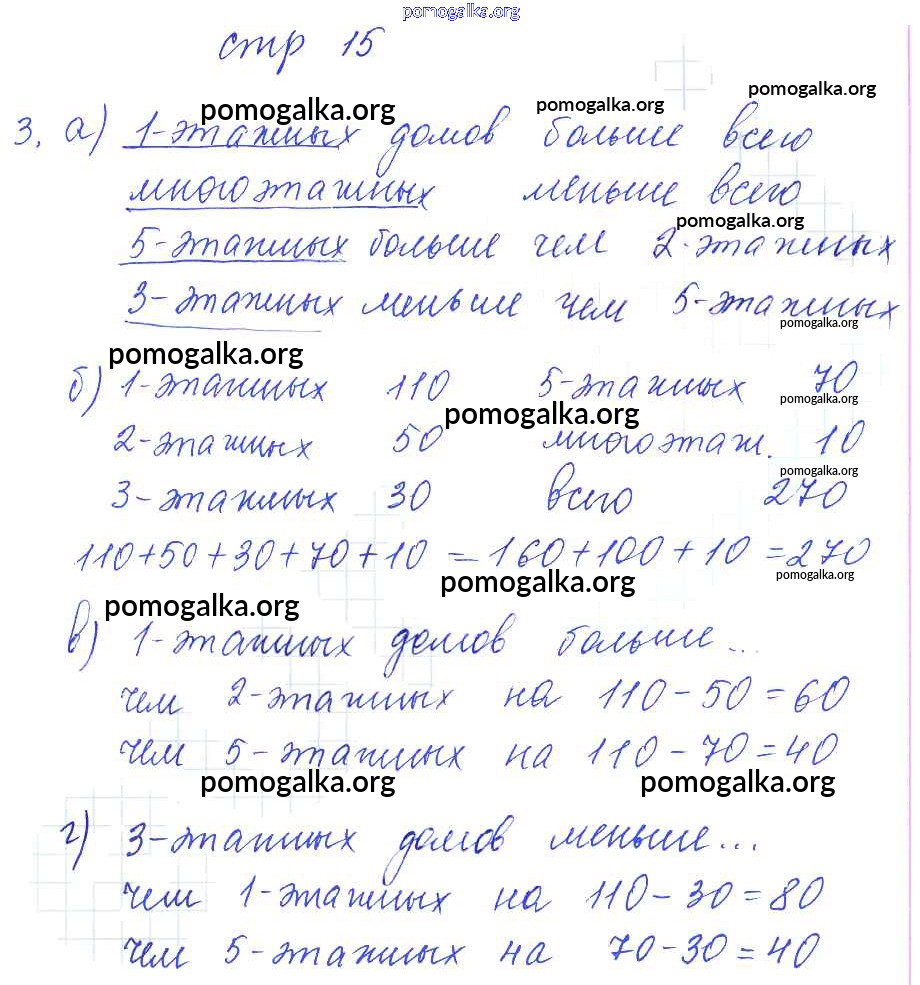 pomogalka.org
стр 15
pomogalka.org pomogalka.org pomogalka.org
3. а) 1-этажных домов больше всего
многоэтажных меньше всего
pomogalka.org
5-этажных больше чем 2-этажных
3-этажных меньше чем 5-этажных
pomogalka.org
pomogalka.org
б) 1-этажных 110 5-этажных 70
pomogalka.org
pomogalka.org
2-этажных 50 многоэтаж. 10
pomogalka.org
3-этажных 30 всего 270
110+50+30+70+10=160+100+10=270
pomogalka.org pomogalka.org
pomogalka.org
в) 1-этажных домов больше...
чем 2-этажных на 110-50=60
чем 5-этажных на 110-70=40
pomogalka.org pomogalka.org
г) 3-этажных домов меньше...
чем 1-этажных на 110-30=80
чем 5-этажных на 70-30=40